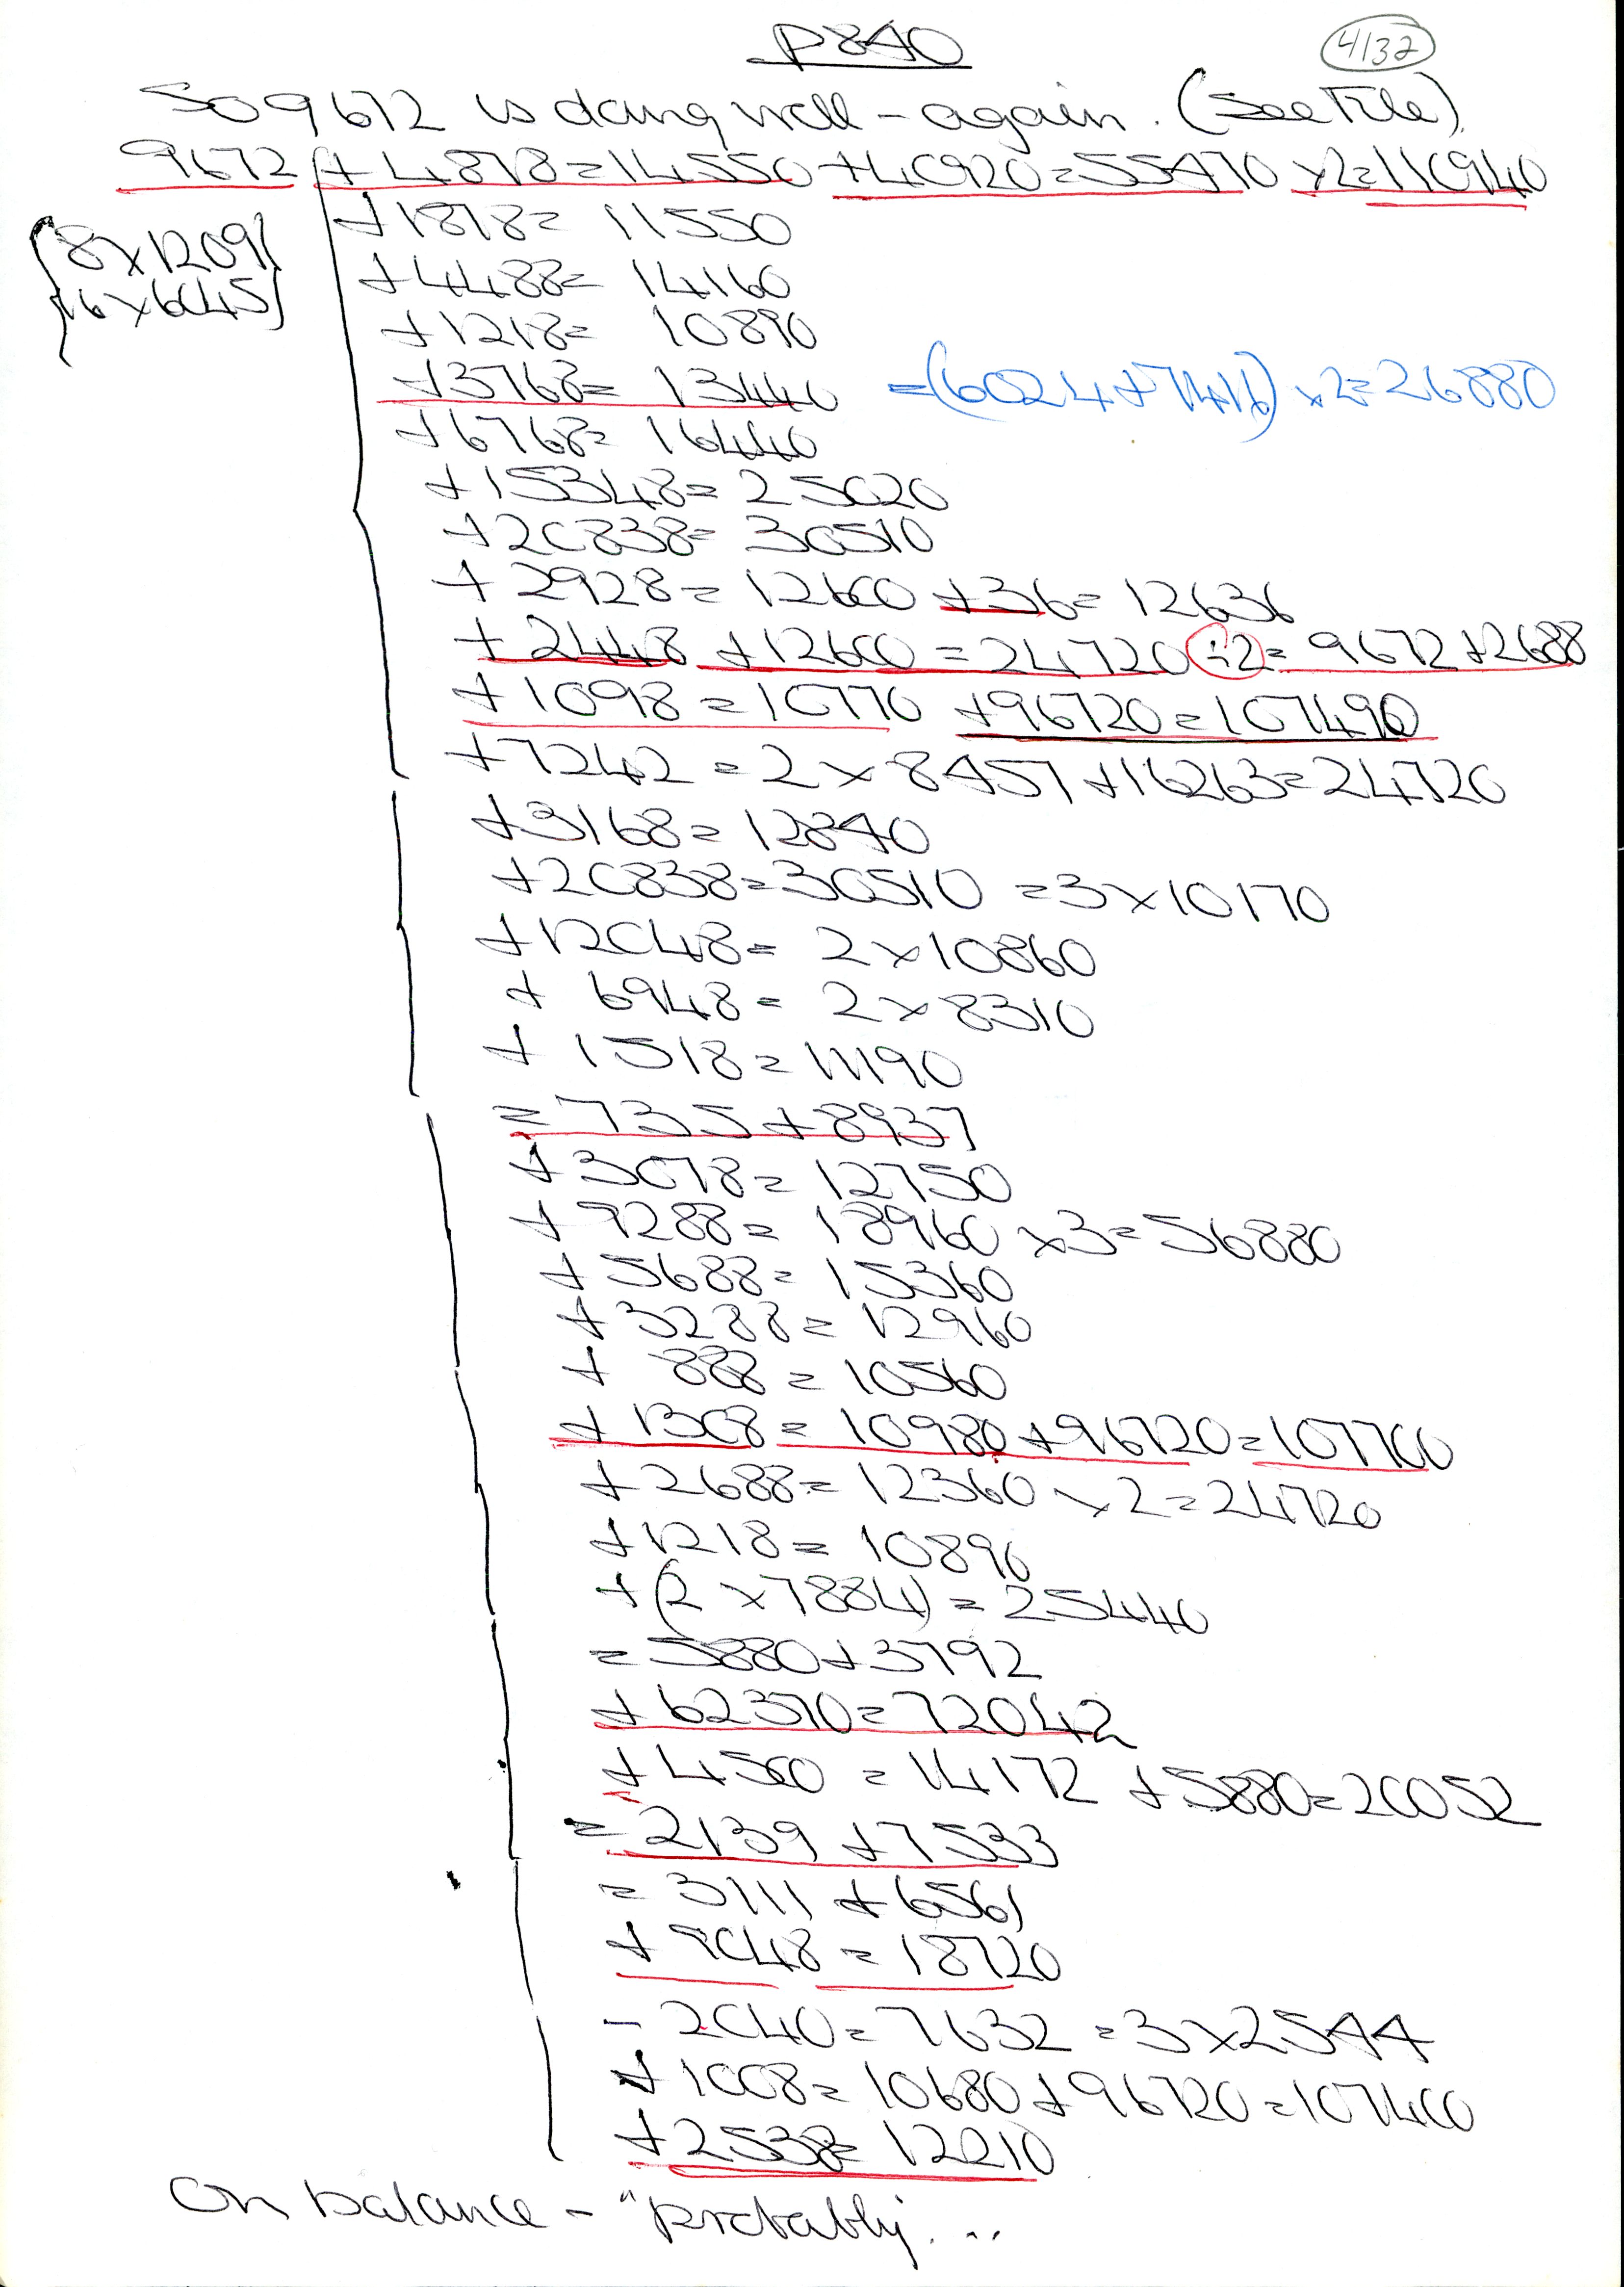 P840
4132
So 9672 is doing well - again. (see Title).
9672 + 4878 = 14550 + 40920 = 55470 x2 = 110940
{8 x 1209}
{16 x 604.5}
+ 1878 = 11550
+ 4488 = 14160
+ 1218 = 10890
+ 3768 = 13440 = (6024 + 7416) x 2 = 26880
+ 6768 = 16440
+ 15348 = 25020
+ 20838 = 30510
+ 2928 = 12600 + 36 = 12636
+ 2448 + 12600 = 24720 ÷ 2 = 9672 + 2688
+ 1098 = 10770 + 96720 = 107490
+ 7242 = 2 x 8457 + 16263 = 24720
+ 3168 = 12840
+ 20838 = 30510 = 3 x 10170
+ 12048 = 2 x 10860
+ 6948 = 2 x 8310
+ 1518 = 11190
= 735 + 8937
+ 3078 = 12750
+ 9288 = 18960 x 3 = 56880
+ 5688 = 15360
+ 3288 = 12960
+ 888 = 10560
+ 1308 = 10980 + 96720 = 107700
+ 2688 = 12360 x 2 = 24720
+ 1218 = 10890
+ (2 x 7884) = 25440
= 5880 + 3792
+ 62370 = 72042
+ 4500 = 14172 + 5880 = 20052
= 2139 + 7533
= 3111 + 6561
+ 9048 = 18720
- 2040 = 7632 = 3 x 2544
+ 1008 = 10680 + 96720 = 107400
+ 2538 = 12210
On balance - "probably...